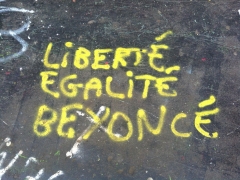 LIBERTÉ
EGALITÉ
BEYONCÉ